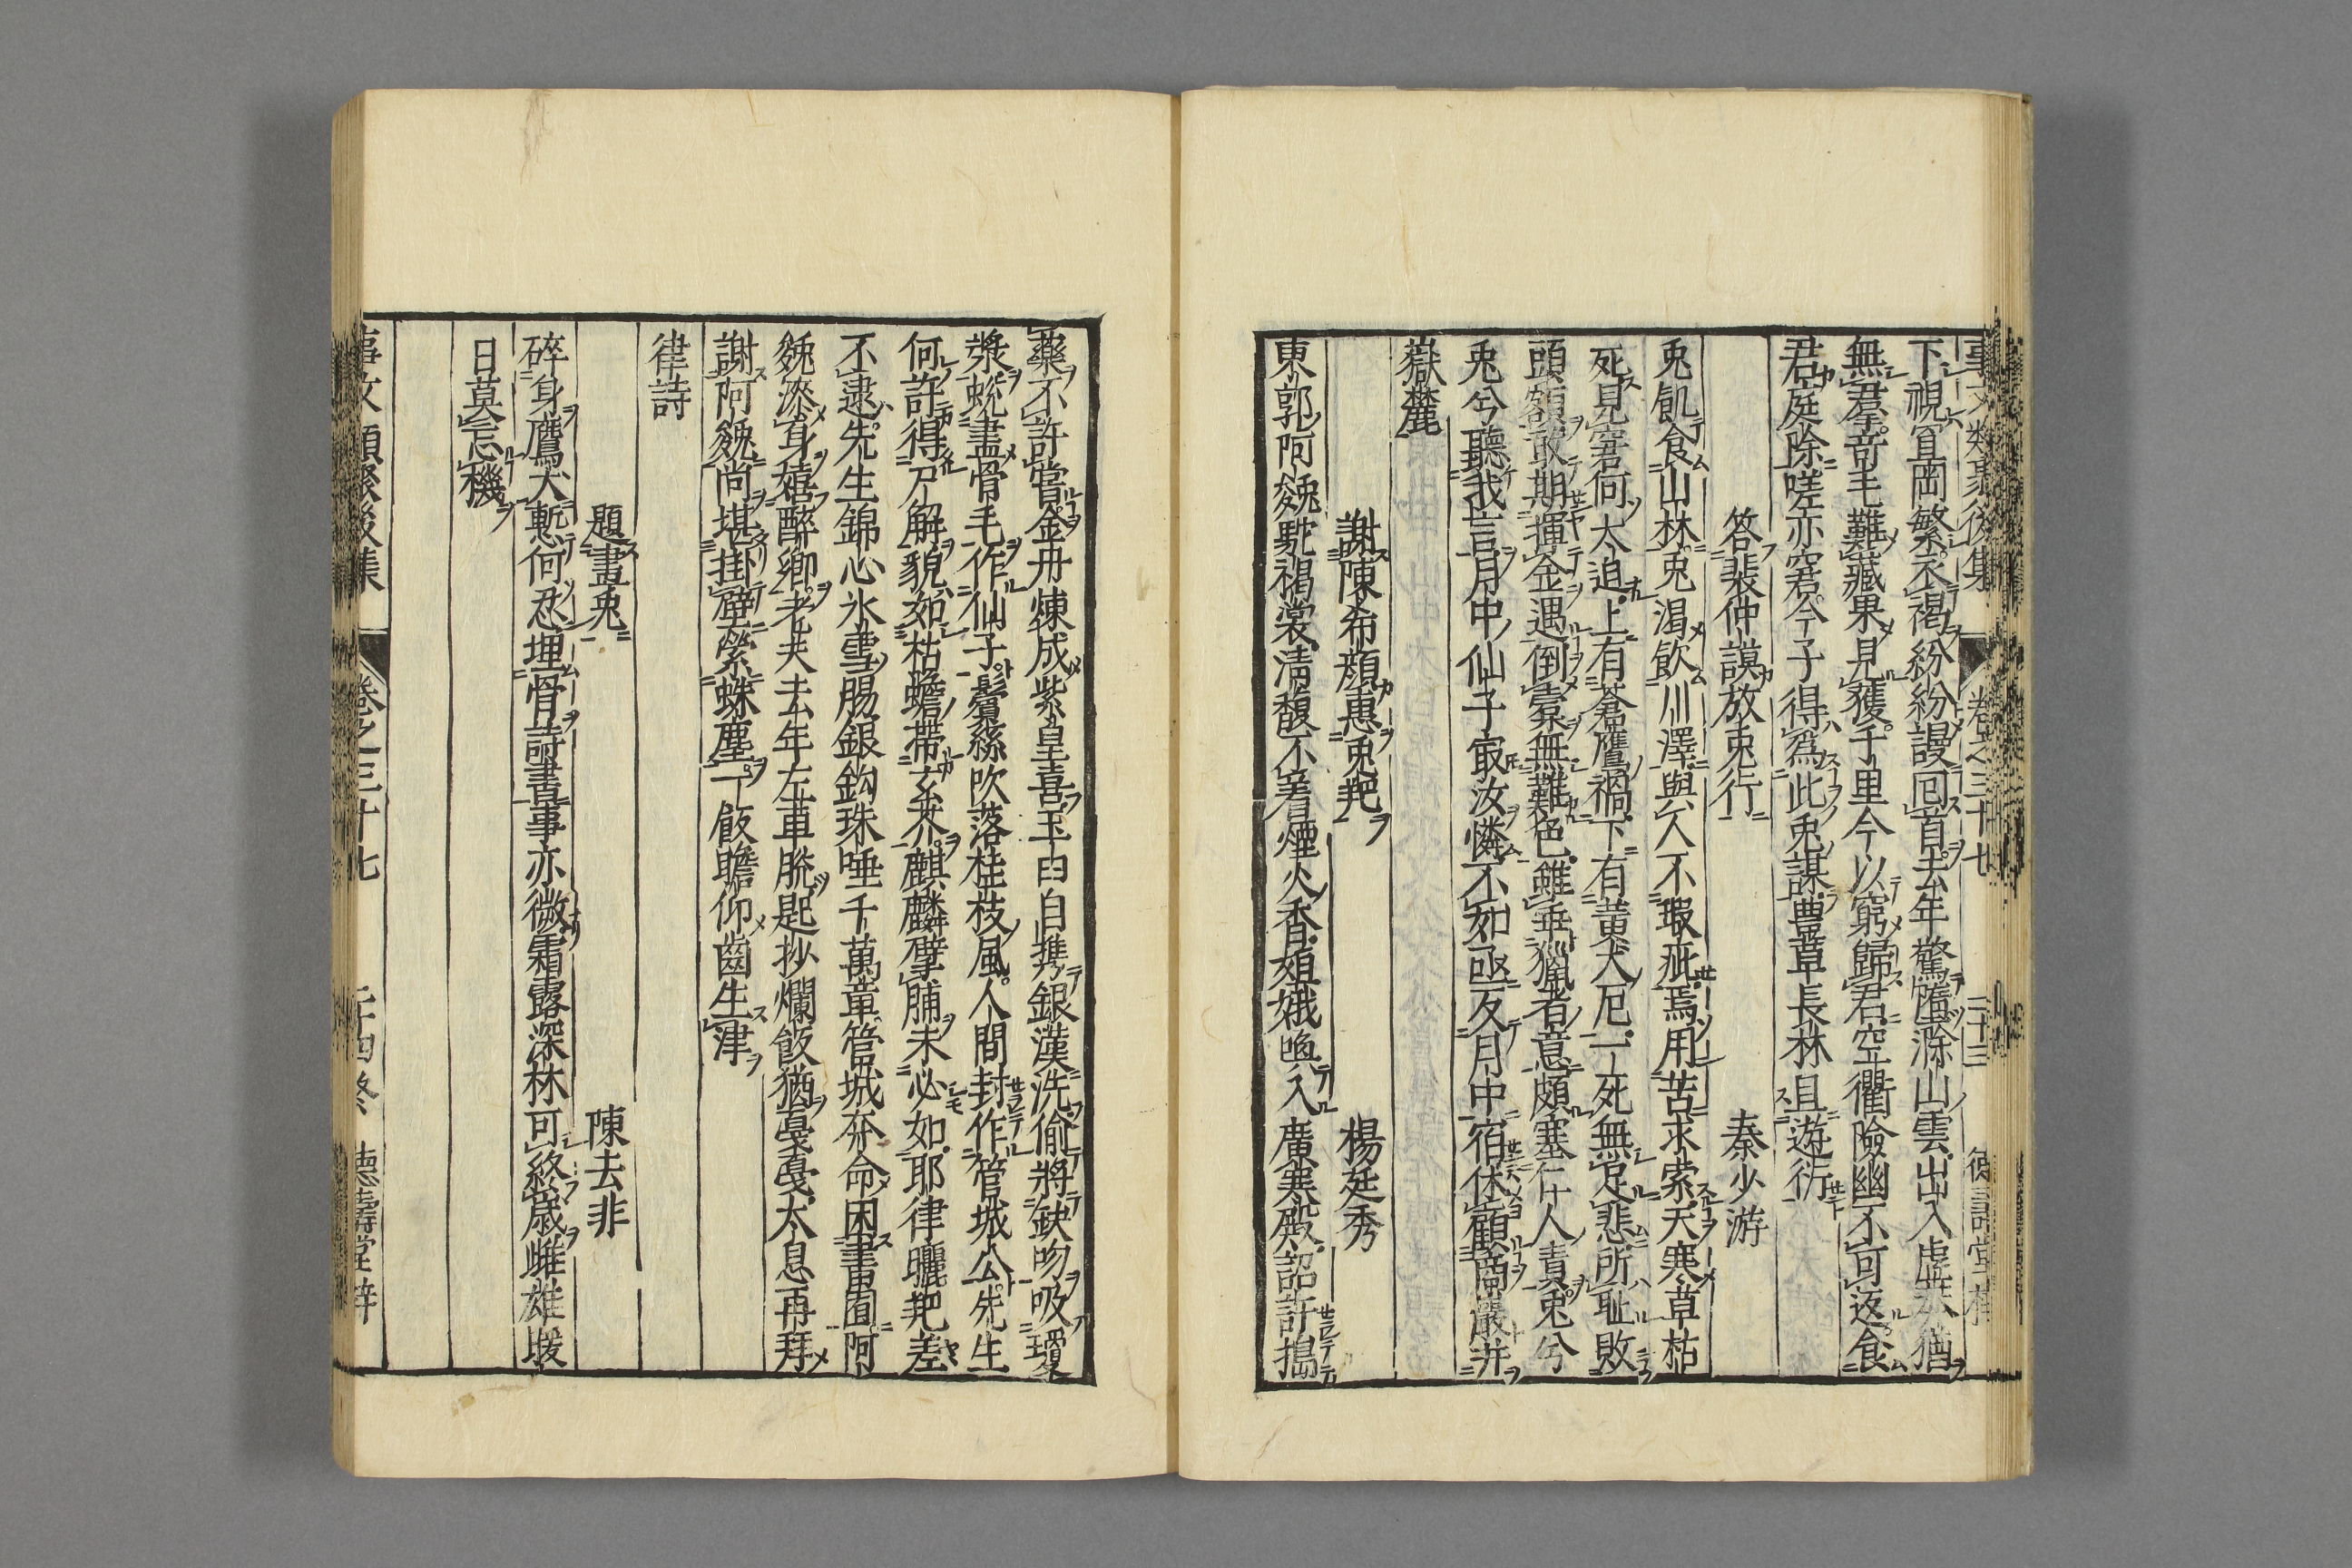 事文類聚後集 卷之三十七 二十三
下視罝岡繁丕褐紛紛謾回首去年驚墮滁山雲出入虛莽猶
無羣奇毛難藏果見獲千里今以窮歸君空衢險幽不可返食
君庭除嗟亦窘今子得為此兎謀豊草長林且遊衍
答裴仲謨放兎行 秦少游
兎飢食山林兎渴飲川澤與人不瑕疵焉用苦求索天寒草枯
死見窘何太迫上有蒼鷹禍下有黃犬厄一死無足悲所耻敗
頭額敢期揮金遇倒橐無難色雖乖獵者意頗塞仁人責兎兮
兎兮聽我言月中仙子寂汝憐不如亟反月中宿休顧商巖并
嶽麓
謝陳希顏惠兎羓 楊廷秀
東郭阿㕙駝褐裳清馥不著煙火香姮娥喚入廣寒殿詔許搗
藥不許嘗金丹煉成紫皇喜玉臼自攜銀漢洗偷將缺吻吸瓊
漿蛻盡骨毛作仙子鬢絲吹落桂枝風人間封作管城公先生
何許得尸解貌如枯蟾帶玄介麒麟擘脯未必如耶律曬羓差
不逮先生錦心冰雪腸銀鈎珠唾千萬章管城奔命困書囿阿
㕙漆身嬉醉鄉老夫去年左車脫匙抄爛飯猶戞戞太息再拜
謝阿㕙尚堪掛壁縈蛛塵一飯瞻仰齒生津
律詩
題畫兎 陳去非
碎身鷹犬慙何忍埋骨詩書事亦微霜露深林可終歲雌雄暖
日莫忘機
事文類聚後集 卷之三十七 二十四終 德壽堂梓